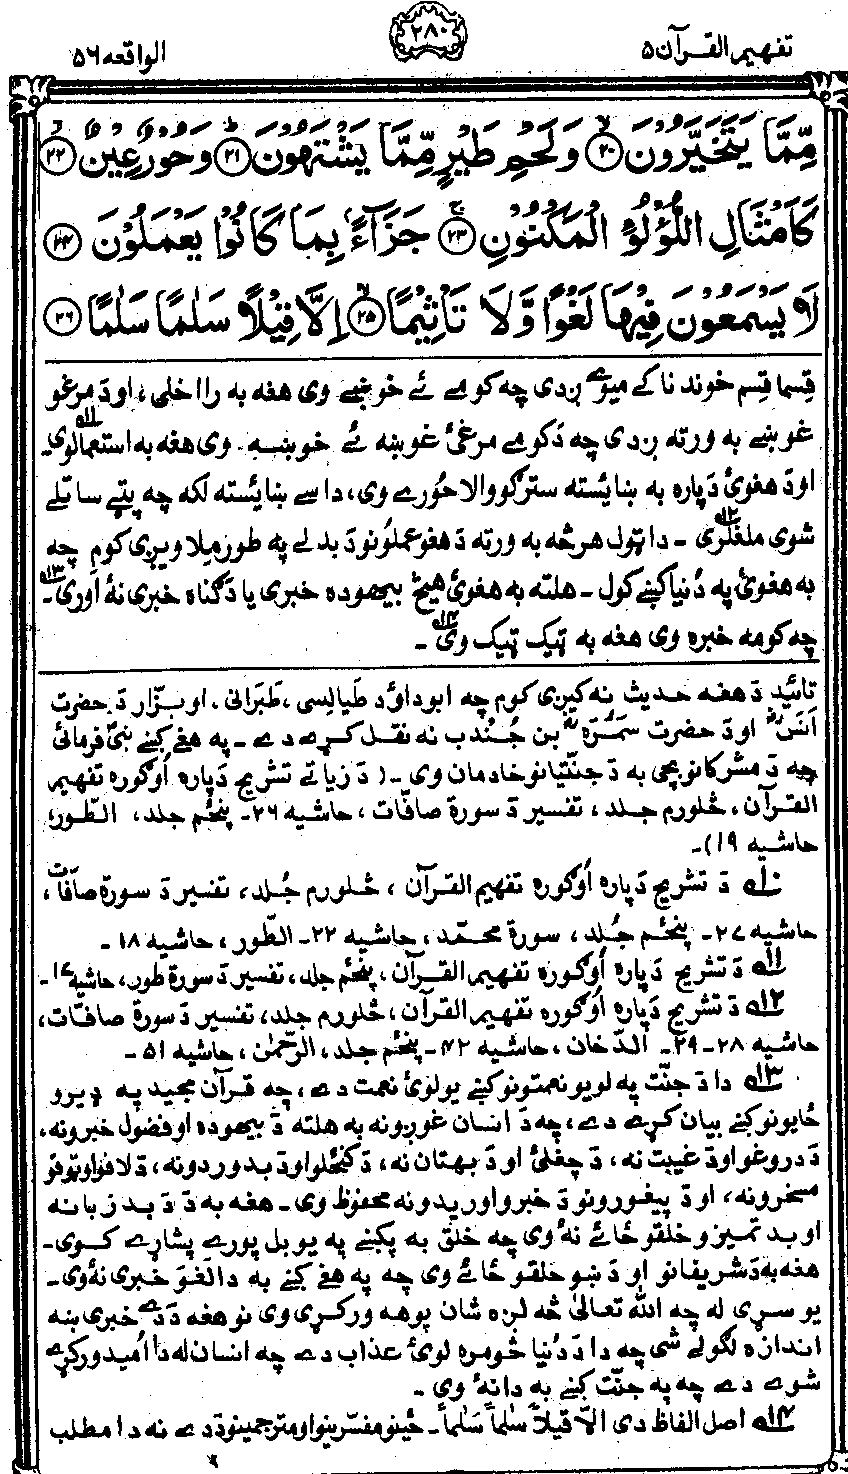 تفهیم القرآن ۵
۲۸۰
الواقعه ۵۶
مِّمَّا يَتَخَيَّرُوْنَ ۙ﴿۲۰﴾ وَلَحْمِ طَيْرٍ مِّمَّا يَشْتَهُوْنَ ؕ﴿۲۱﴾ وَحُوْرٌ عِيْنٌ ۙ﴿۲۲﴾
كَاَمْثَالِ اللُّؤْلُؤِ الْمَكْنُوْنِ ۚ﴿۲۳﴾ جَزَآءًۢ بِمَا كَانُوْا يَعْمَلُوْنَ ﴿۲۴﴾
لَا يَسْمَعُوْنَ فِيْهَا لَغْوًا وَّلَا تَاْثِيْمًا ۙ﴿۲۵﴾ اِلَّا قِيْلًا سَلٰمًا سَلٰمًا ﴿۲۶﴾
قِسما قِسم خوند ناکے میوے بږدي چه کومے ئے خوښے وی هغه به را اخلی، او دَ مرغو
غوښے به ورته بږدی چه دَ کومے مرغئ غوښه ئے خوښه وی هغه به استعمالوی۔ ۱۱ه
او دَ هغوئ دَپاره به ښائسته سترګو والا حُورے وی، داسے ښائسته لکه چه پټے ساتلے
شوی ملغلرې ۱۲ه ۔ دا ټول هر څه به ورته دَ هغو عملونو دَ بدلے په طور ملاویږی کوم چه
به هغوئ په دُنیا کښے کول ۔ هلته به هغوئ هیڅ بیهوده خبری یا دَ ګناه خبری نهٔ اوری۔ ۱۳ه
چه کومه خبره وی هغه به ټیک ټیک وی ۱۴ه ۔
تائید دَ هغه حدیث نه کیږی کوم چه ابو داؤد طَیالِسی، طَبَرانی، او بزّار دَ حضرت
اَنَسؓ او دَ حضرت سَمُرَهؓ بن جُنْدُب نه نقل کړے دے ۔ په هغے کښے نبیؐ فرمائی
چه دَ مشرکانو بچی به دَ جنّتیانو خادمان وی ۔ (دَ زیاتے تشریح دَپاره اُوګوره تفهیم
القرآن، څلورم جلد، تفسیر دَ سورة صافّات، حاشیه ۲۶۔ پنځم جلد، الطّور،
حاشیه ۱۹)۔
۱۰ه دَ تشریح دَپاره اُوګوره تفهیم القرآن، څلورم جُلد، تفسیر دَ سورة صافّات،
حاشیه ۲۷۔ پنځم جُلد، سورة محمّد، حاشیه ۲۲۔ الطّور، حاشیه ۱۸ ۔
۱۱ه دَ تشریح دَپاره اُوګوره تفهیم القرآن، پنځم جلد، تفسیر دَ سورة طور، حاشیه ۱۷۔
۱۲ه دَ تشریح دَپاره اُوګوره تفهیم القرآن، څلورم جلد، تفسیر دَ سورة صافات،
حاشیه ۲۸ ۔ ۲۹ ۔ الدّخان، حاشیه ۴۲ ۔ پنځم جلد، الرّحمٰن، حاشیه ۵۱ ۔
۱۳ه دا دَ جنّت په لویو نعمتونو کښے یو لوئ نعمت دے، چه قرآن مجید په ډیرو
ځایونو کښے بیان کړے دے، چه دَ انسان غوږونه به هلته دَ بیهوده او فضول خبرونه،
دَ دروغو او دَ غیبت نه، دَ چغلئ او دَ بهتان نه، دَ کنځلو او دَ بدو ردونه، دَ لافو او ټوقو ټو
مسخرونه، او دَ پیغورونو دَ خبرو اوریدو نه محفوظ وی ۔ هغه به دَ دَ بد زبانه
او بد تمیزو خلقو ځائے نهٔ وی چه خلق به پکښے په یو بل پورے پشارے کوی۔
هغه به دَ شریفانو او دَ ښو خلقو ځائے وی چه په هغے کښے به دا لغو خبری نهٔ وی ۔
یو سړی له چه الله تعالیٰ څه لږه شان پوهه ورکړی وی نو هغه دَ دے خبری ښه
اندازه لګولے شی چه دا دَ دُنیا څومره لوئ عذاب دے چه انسان له دا اُمید ورکړے
شوے دے چه په جنّت کښے به دا نهٔ وی ۔
۱۴ه اصل الفاظ دی الّا قیلاً سلٰماً سَلٰماً ۔ ځینو مفسّرینو او مترجمینو دَ دے نه دا مطلب